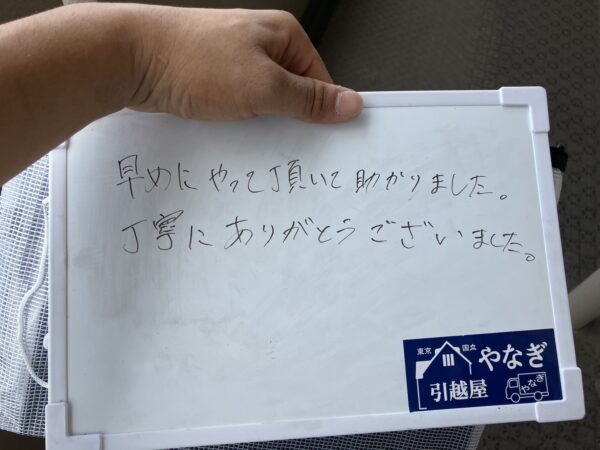 早めにやって頂いて助かりました。
丁寧にありがとうございました。
東京 国立 やなぎ
引越屋 やなぎ